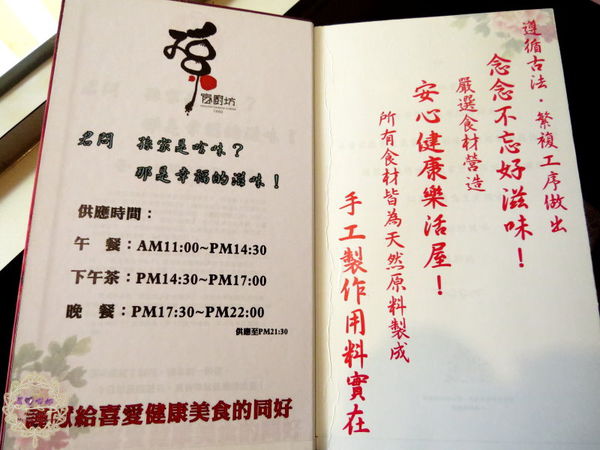 宮廚坊
君問　孫家是啥味？
那是幸福的滋味！
供應時間：
午　餐：AM11:00~PM14:30
下午茶：PM14:30~PM17:00
晚　餐：PM17:30~PM22:00
供應至PM21:30
謹獻給喜愛健康美食的同好
遵循古法．繁複工序做出
念念不忘好滋味！
嚴選食材營造
安心健康樂活屋！
所有食材皆為天然原料製成
手工製作用料實在